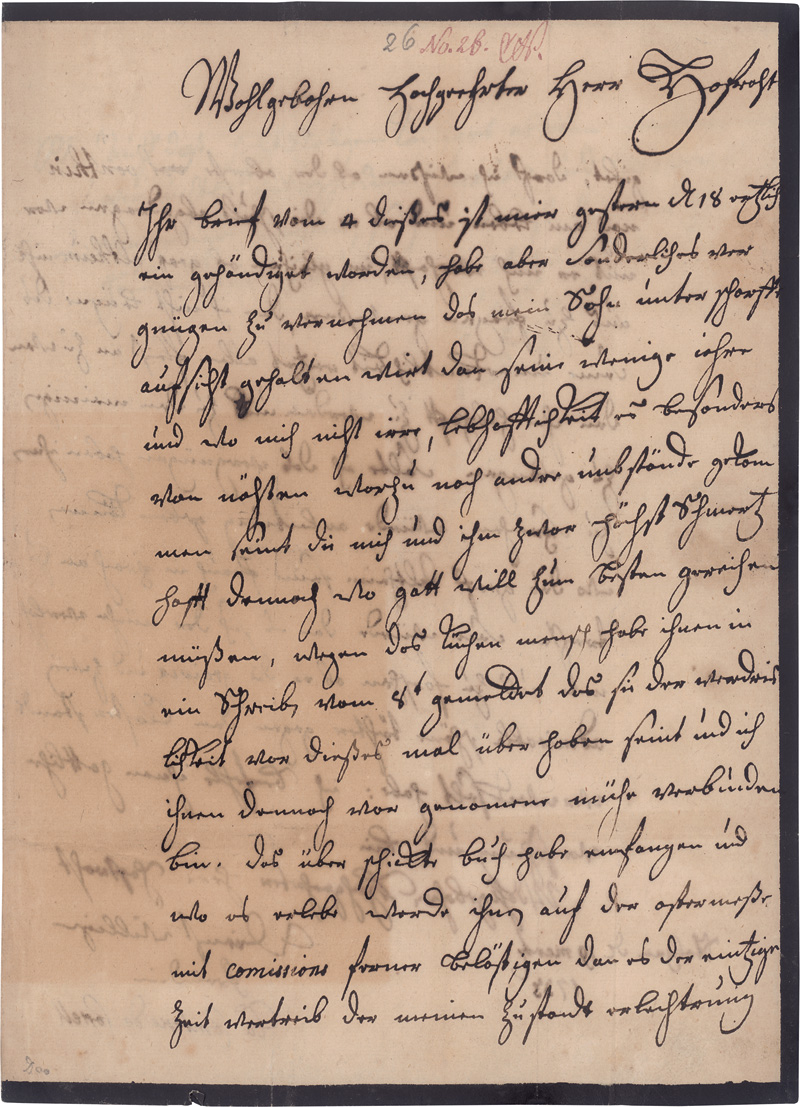 26 No. 26.
Wohlgebohrn Hochgeehrter Herr Hofraht
Ihr brief vom 4 dießes ist mier gestern d 18 ertzlich
ein gehändiget worden, habe aber sonderliches ver
gnügen zu vernehmen das mein Sohn unter scharffe
aufsicht gehalten wirt dan seine wenige iahre
und wo mich niht irre, lebhafftichkeit es besonders
von nöhten worzu noch andre umbstände gekom
men seint die mich und ihm zwar höchst Schmertz
hafft dennoch wo gott will zum besten gereichen
müßen, wegen das Kuchen mensch habe ihnen in
ein Schreib vom 8t gemeldet das sie der verdris
lichkeit vor dießes mal über hoben seint und ich
ihnen dennoch vor genomene mühe verbunden
bin. das über schickte buch habe emfangen und
wo es erlebe werde ihnen auf der ostermeße
mit comissions ferner belästigen dan es der eintzige
Zeit vertreib der meinen Zustandt erlechtrung